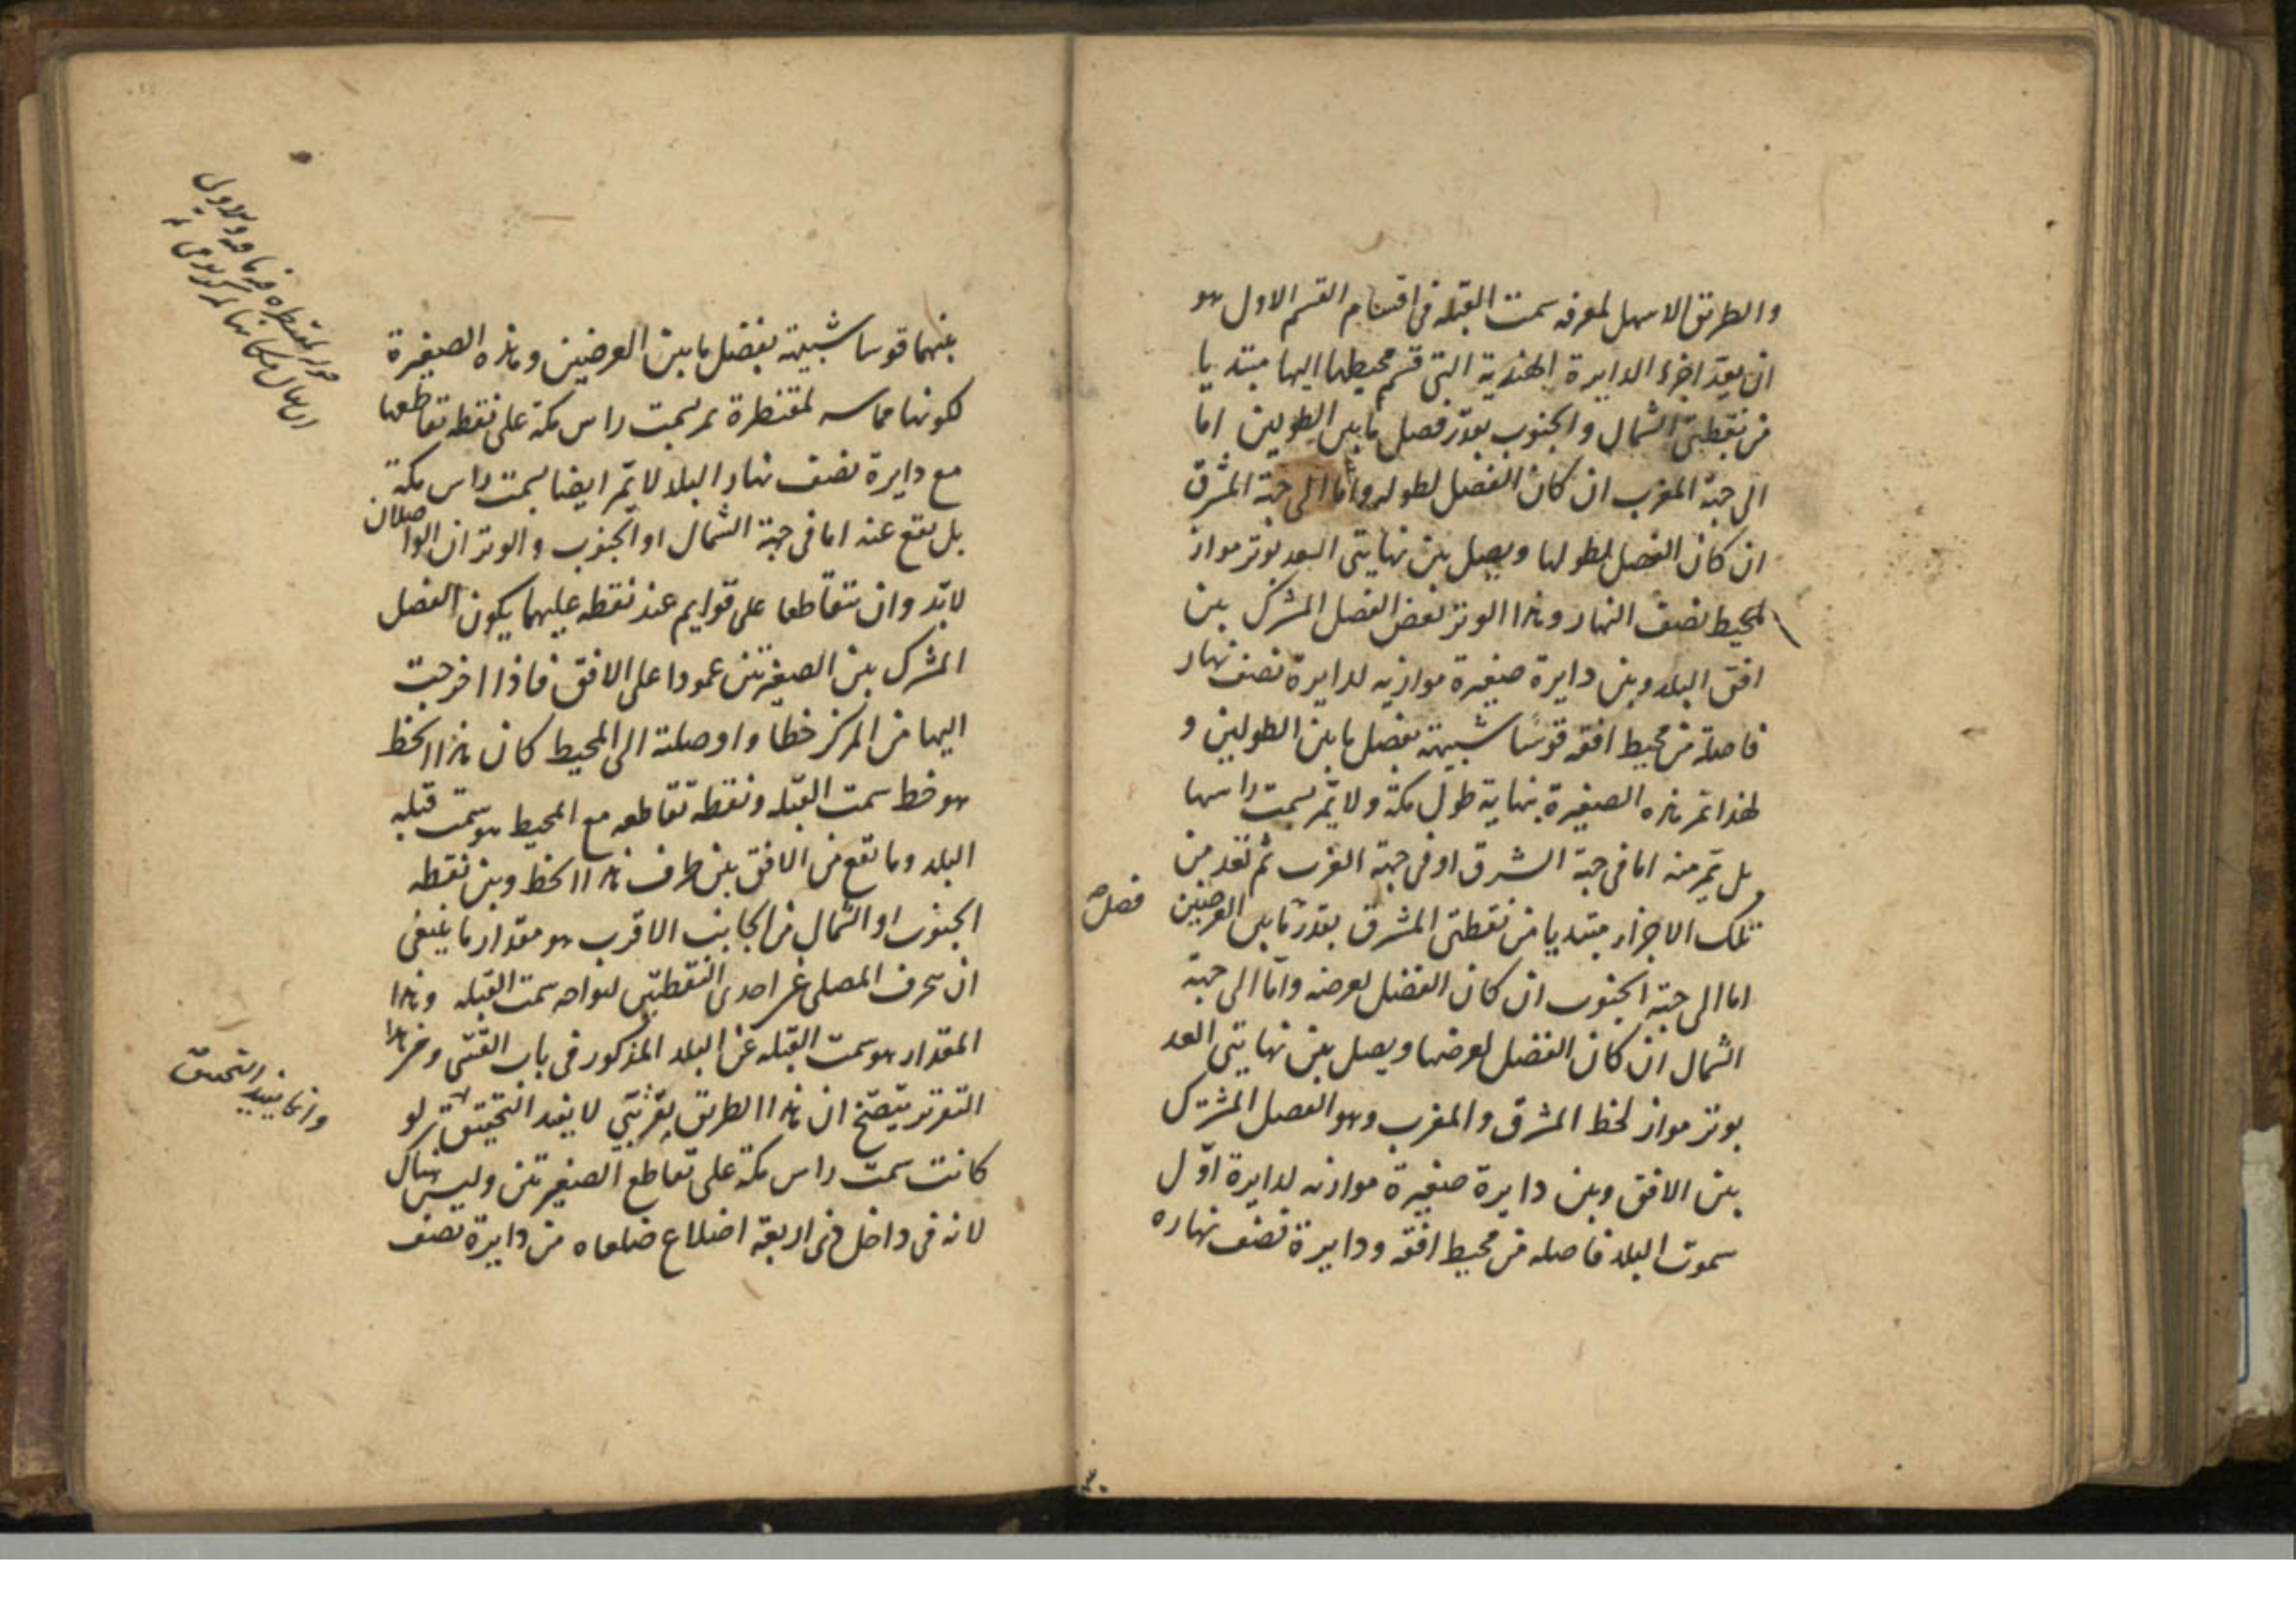 والطريق الاسهل لمعرفه سمت القبله فى اقسام القسم الاول هو
ان يعد اجزاء الدايرة الهندية التى قسم محيطها اليها مبتديا
من نقطتى الشمال والجنوب بقدر فضل ما بين الطولين اما
الى جهة المغرب ان كان الفضل لطوله واما الى جهة المشرق
ان كان الفضل لطولها ويصل بين نهايتى العد بوتر مواز
لمحيط نصف النهار وهذا الوتر نفض الفصل المشترك بين
افق البلد وبين دايرة صغيرة موازيه لدايرة نصف نهار
فاصلة من محيط افقه قوسا شبيهة بفضل ما بين الطولين و
لهذا تمر هذه الصغيرة بنهاية طول مكة ولا تمر بسمت راسها
بل تمر منه اما فى جهة الشرق او فى جهة الغرب ثم تعد من
تلك الاجزاء مبتديا من نقطتى المشرق بقدر ما بين العرضين
فضل
اما الى جهة الجنوب ان كان الفضل لعرضه واما الى جهة
الشمال ان كان الفضل لعرضها ويصل بين نهايتى العد
بوتر مواز لخط المشرق والمغرب وهو الفصل المشترك
بين الافق وبين دايرة صغيرة موازيه لدايرة اول
سموت البلد فاصله من محيط افقه ودايرة نصف نهاره
بينهما قوسا شبيهة بفضل ما بين العرضين وهذه الصغيرة
لكونها مماسه لمقنطرة تمر بسمت راس مكة على نقطه تقاطعها
مع دايرة نصف نهار البلد لا تمر ايضا بسمت راس مكة
بل تقع عنه اما فى جهة الشمال او الجنوب والوتران الواصلان
لابد وان يتقاطعا على قوايم عند نقطه عليهما يكون الفصل
المشترك بين الصغيرتين عمودا على الافق فاذا اخرجت
اليها من المركز خطا واوصلته الى المحيط كان هذا الخط
هو خط سمت القبله ونقطه تقاطعه مع المحيط هو سمت قبله
البلد وما تقع من الافق بين طرف هذا الخط وبين نقطه
الجنوب او الشمال من الجانب الاقرب هو مقدار ما ينبغى
ان ينحرف المصلى عن احدى النقطتين لمواجهه سمت القبله وهذا
المقدار هو سمت القبله عن البلد المذكور فى باب القسى ومن هذا
التقرير يتضح ان هذا الطريق تقريبى لا يفيد التحقيق لو
وانما يفيد التحقيق
كانت سمت راس مكة على تقاطع الصغيرتين وليس هناك
لانه فى داخل ذى اربعة اضلاع ضلعاه من دايرة نصف